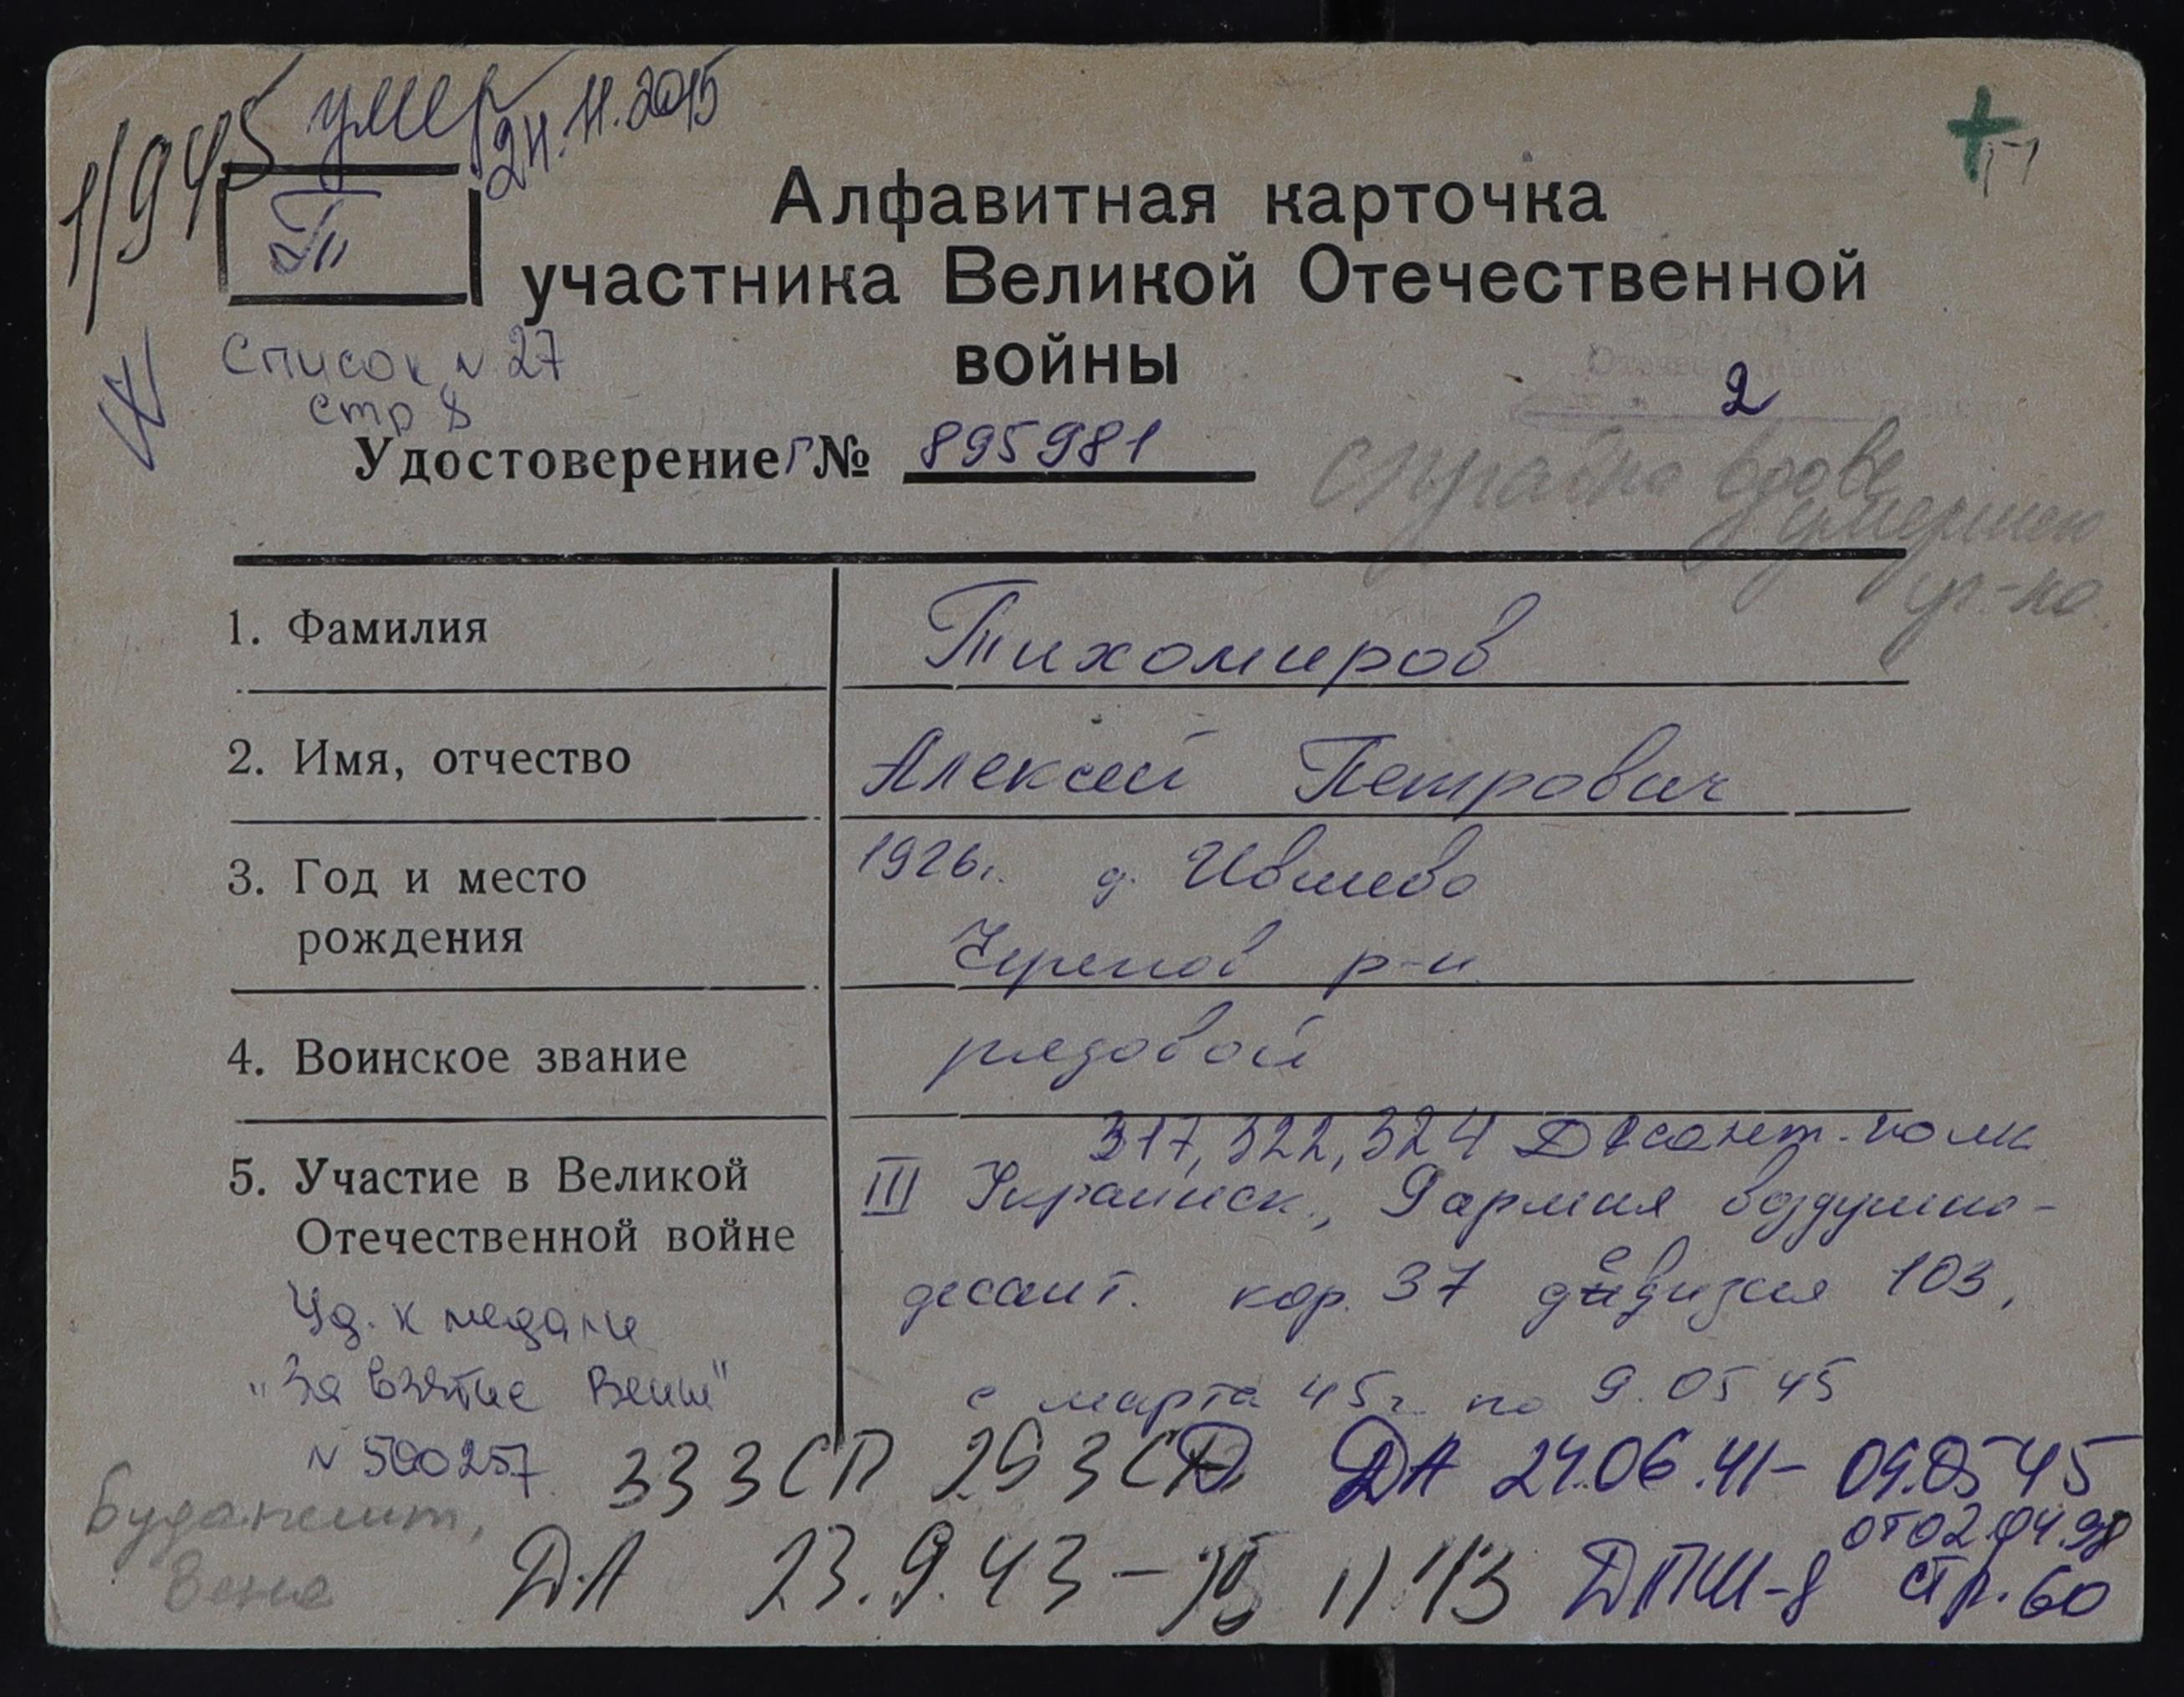 1/945 умер 24.11.2015
Т
Алфавитная карточка
участника Великой Отечественной
войны
Список N 27
стр 8
2
Удостоверение Г № 895981
справка вдове
умершего
уч-ка
1. Фамилия Тихомиров
2. Имя, отчество Алексей Петрович
3. Год и место рождения 1926г. д. Ившево
Черепов р-н
4. Воинское звание рядовой
317, 322, 324 Десант. полк
5. Участие в Великой Отечественной войне III Украинск., 9 армия воздушно-
десант. кор. 37 дивизия 103,
с марта 45г. по 9.05 45
Уд. к медали
"За взятие Вены"
N 590257
333 СП 293 СД ДА 24.06.41 - 09.05 45
Будапешт,
Вена
от 02.04.98
ДА 23.9.43 - 11 43 ДПШ-8 стр. 60